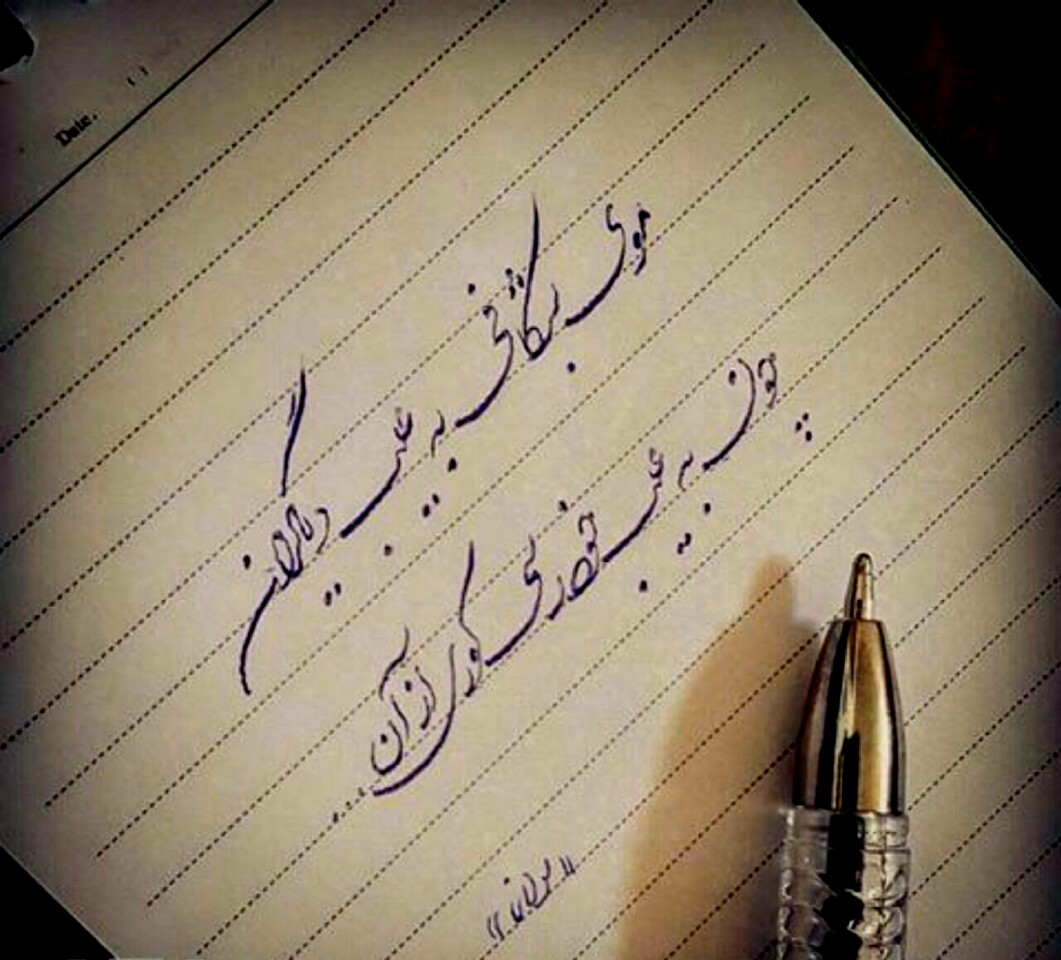 Date. ( )
موی بشکافی به عیب دیگران
چون به عیب خود رسی کوری از آن ....
"مولانا"